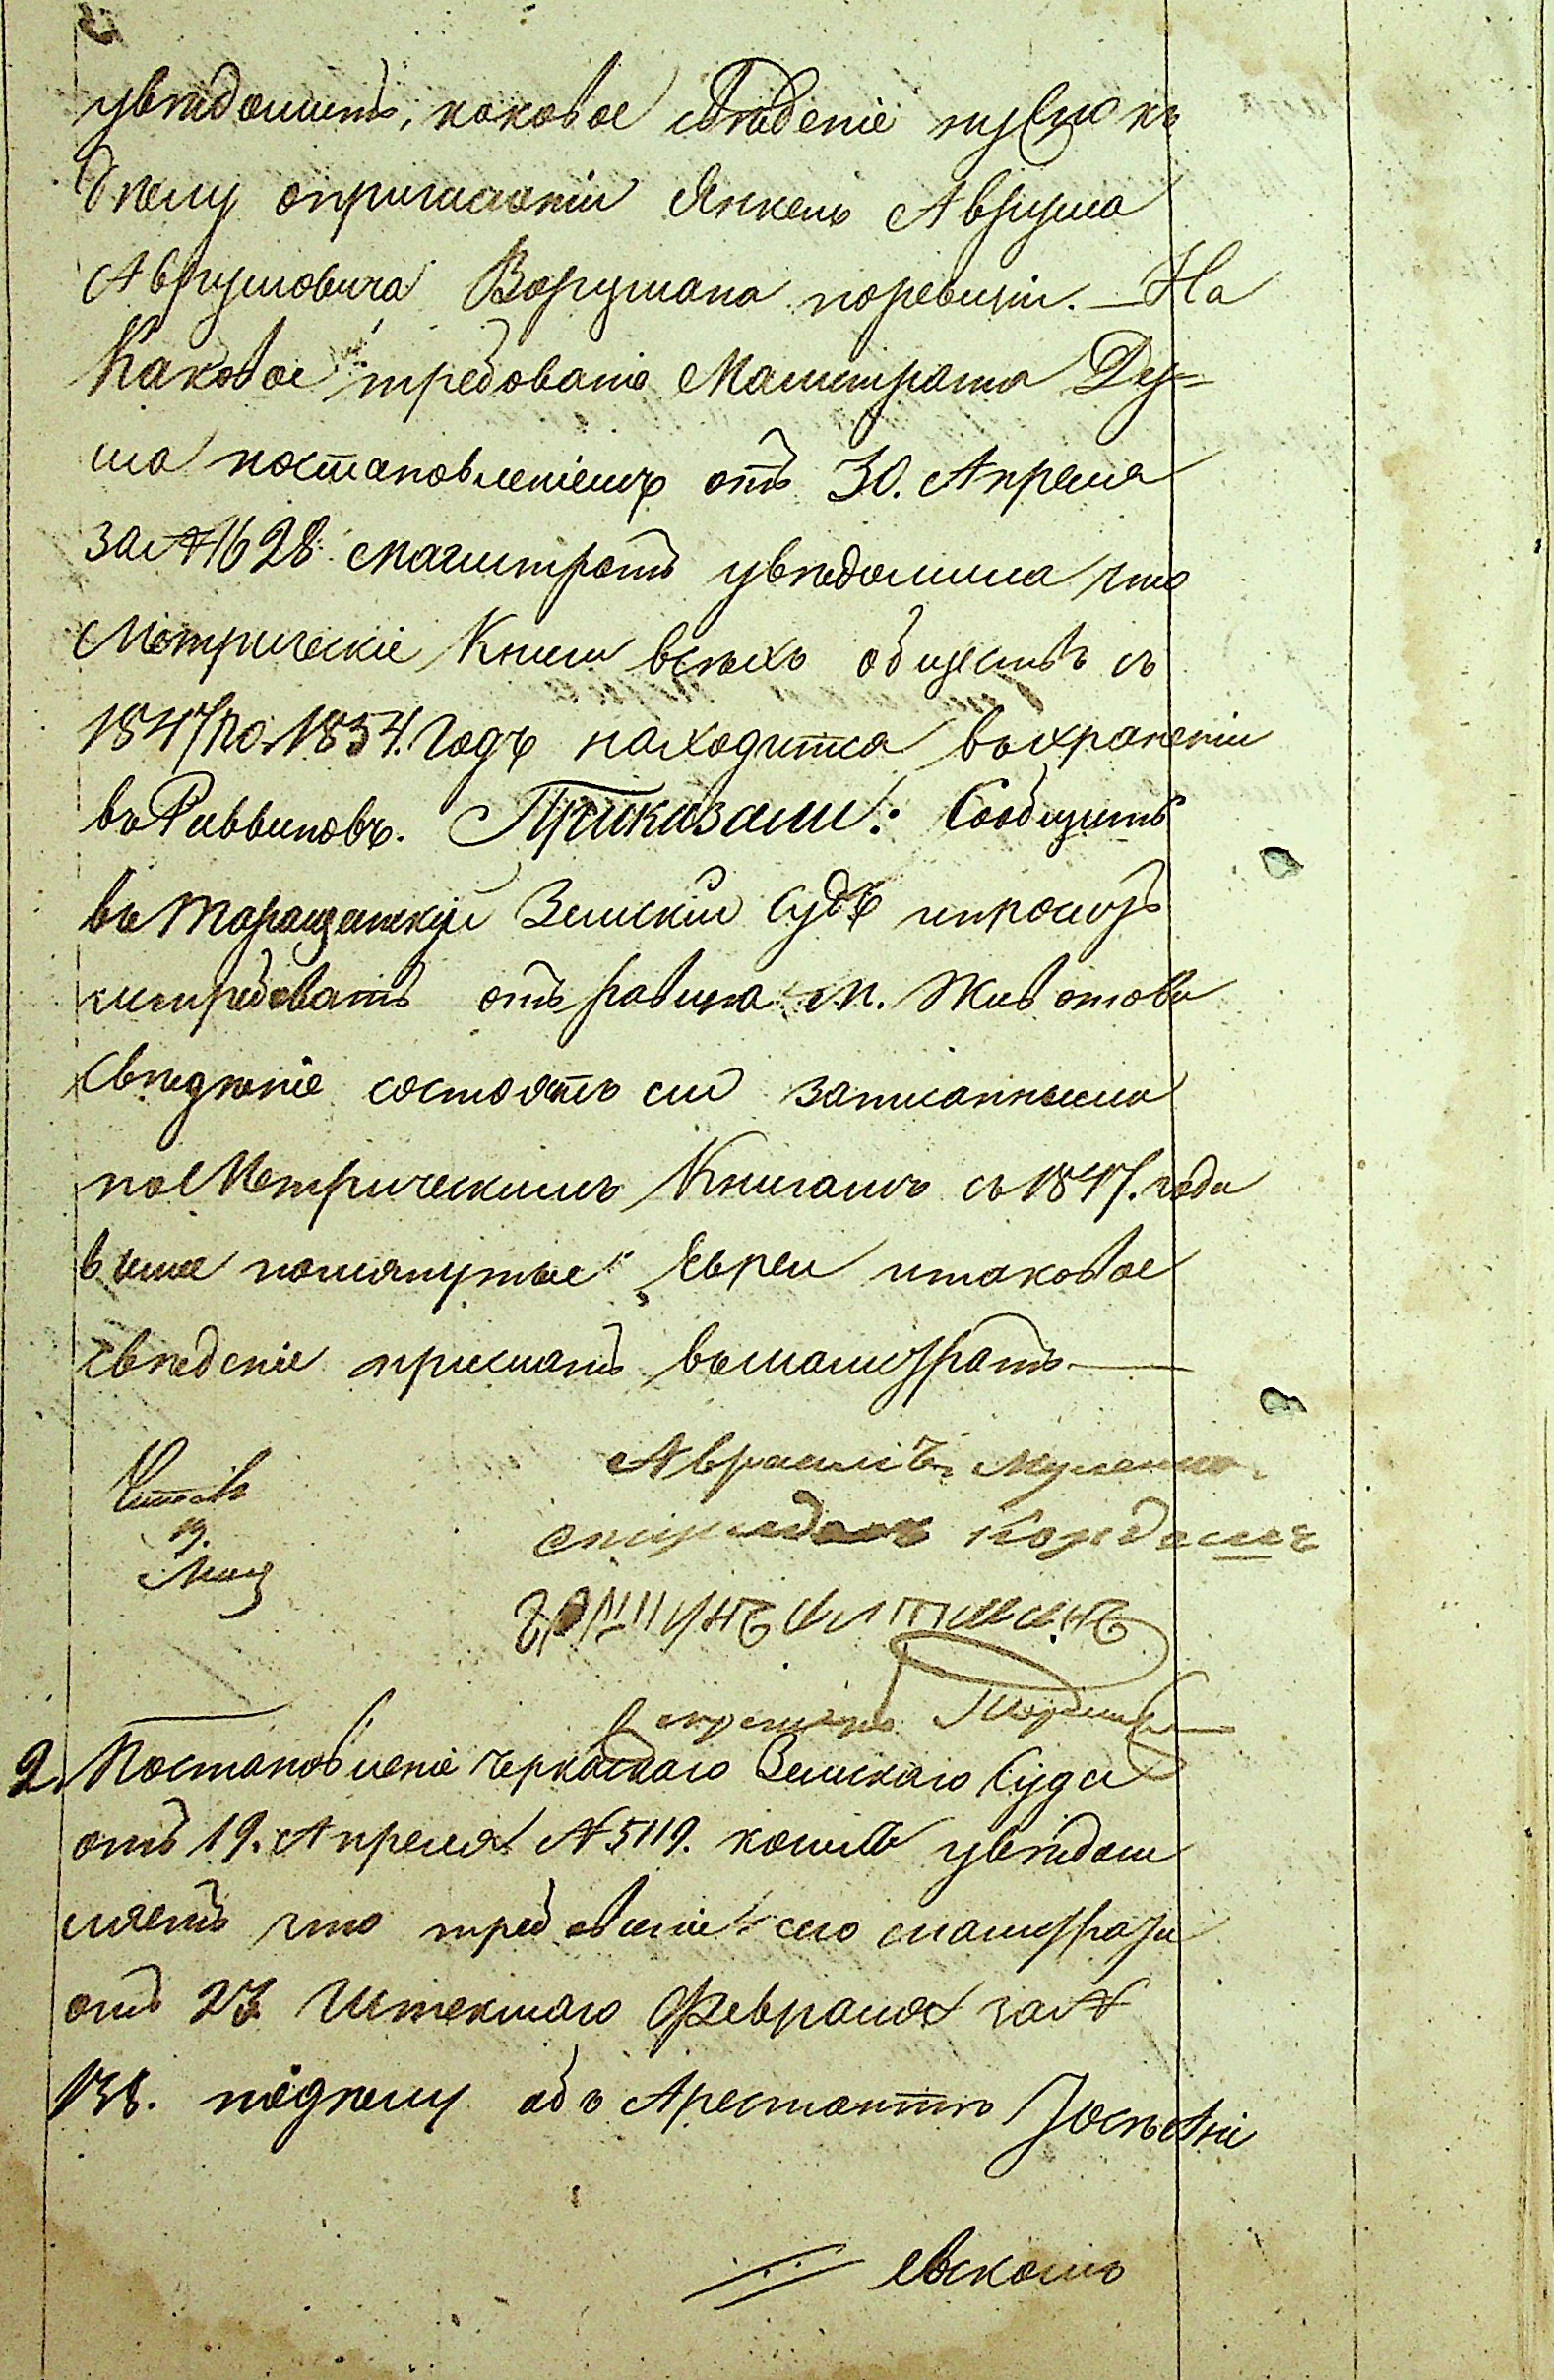 увѣдомить, каковое свѣденіе нужно къ
дѣлу опричисленіи Янкель Аврума
Аврумовича Ворумана поревизіи. — На
Каковое требованіе Магистрата Ду=
ма постановленіемъ отъ 30. Апреля
за № 1628 Магистратъ увѣдомила что
Метрическіе Книги всѣхъ обществъ съ
1847 по 1854. Годъ находится въ храненіи
въ Раввиновъ. Приказали: Сообщить
въ Таращанскій Земскій Судъ ипросить
истребовать отъ равина м. Животова
Свѣдѣніе состоятъ ли записанными
по Метрическимъ Книгамъ съ 1847. года
выше помянутые Евреи итаковое
свѣденіе прислать вмагистратъ —
Читалъ
Секретарь
2. Постановленіе Черкаскаго Земскаго Суда
отъ 19. Апреля № 5119. коимъ увѣдом
ляетъ что требованіе сего магистрата
отъ 23 Истекшаго Февраля за №
138. подѣлу объ Арестантѣ
евскомъ